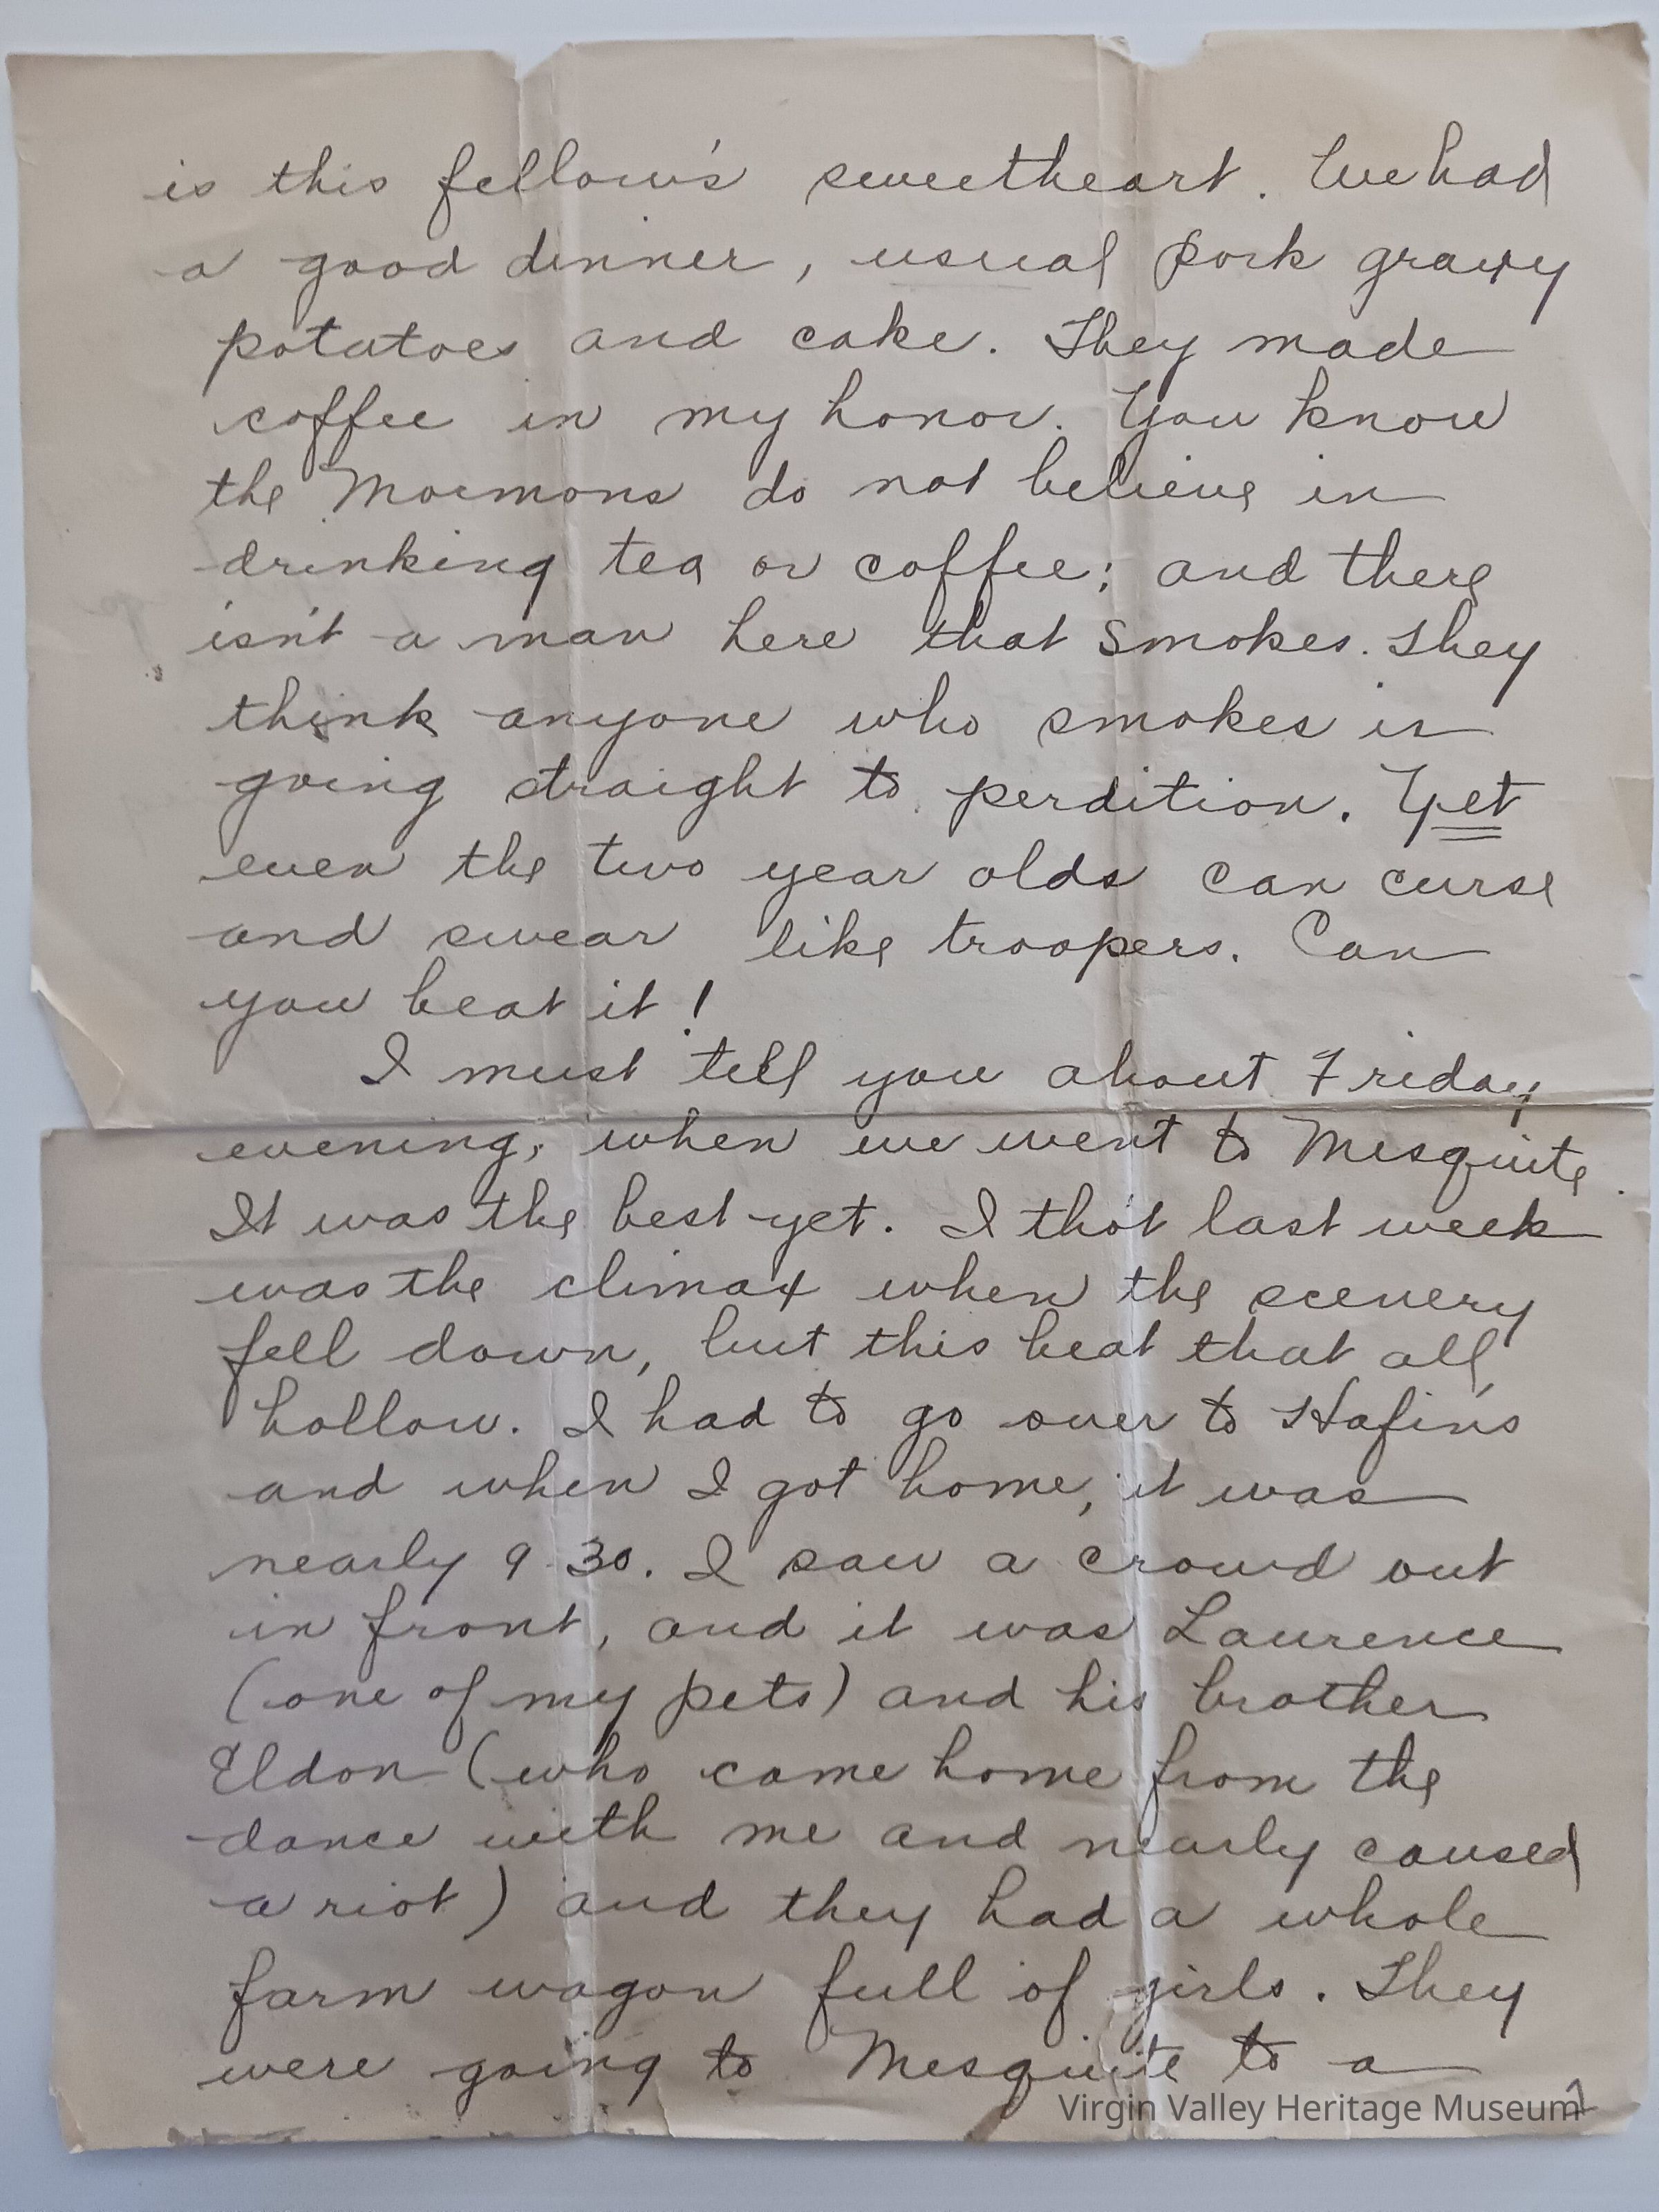 is this fellow's sweetheart. We had
a good dinner, usual pork gravy
potatoes and cake. They made
coffee in my honor. You know
the Mormons do not believe in
drinking tea or coffee; and there
isn't a man here that smokes. They
think anyone who smokes is
going straight to perdition. Yet
even the two year olds can curse
and swear like troopers. Can
you beat it!
I must tell you about Friday
evening, when we went to Mesquite.
It was the best yet. I tho't last week
was the climax when the scenery
fell down, but this beat that all
hollow. I had to go over to Hafin's
and when I got home, it was
nearly 9-30. I saw a crowd out
in front, and it was Laurence
(one of my pets) and his brother
Eldon (who came home from the
dance with me and nearly caused
a riot) and they had a whole
farm wagon full of girls. They
were going to Mesquite to a
Virgin Valley Heritage Museum